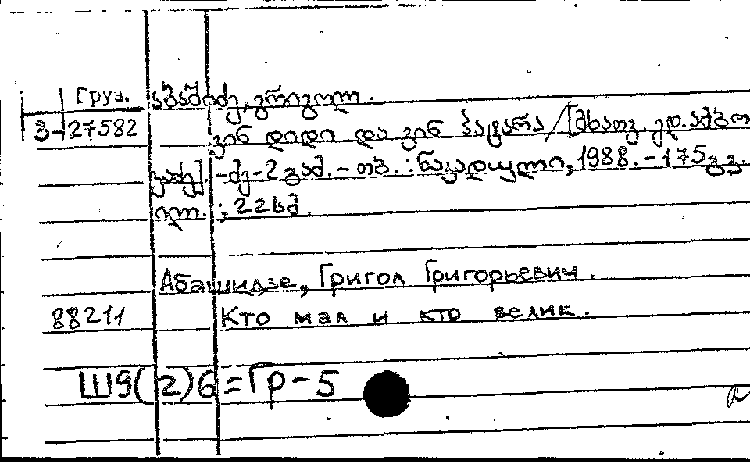 Груз. აბაშიძე, გრიგოლ.
3-27582 ვინ დიდი და ვინ პატარა / [მხატვ. ედ. ამბო
კაძე]. - მე-2 გამ. - თბ. : ნაკადული, 1988. - 175 გვ.
ილ. ; 22 სმ.
Абашидзе, Григол Григорьевич.
88211 Кто мал и кто велик.
Ш9(2)6=Гр-5